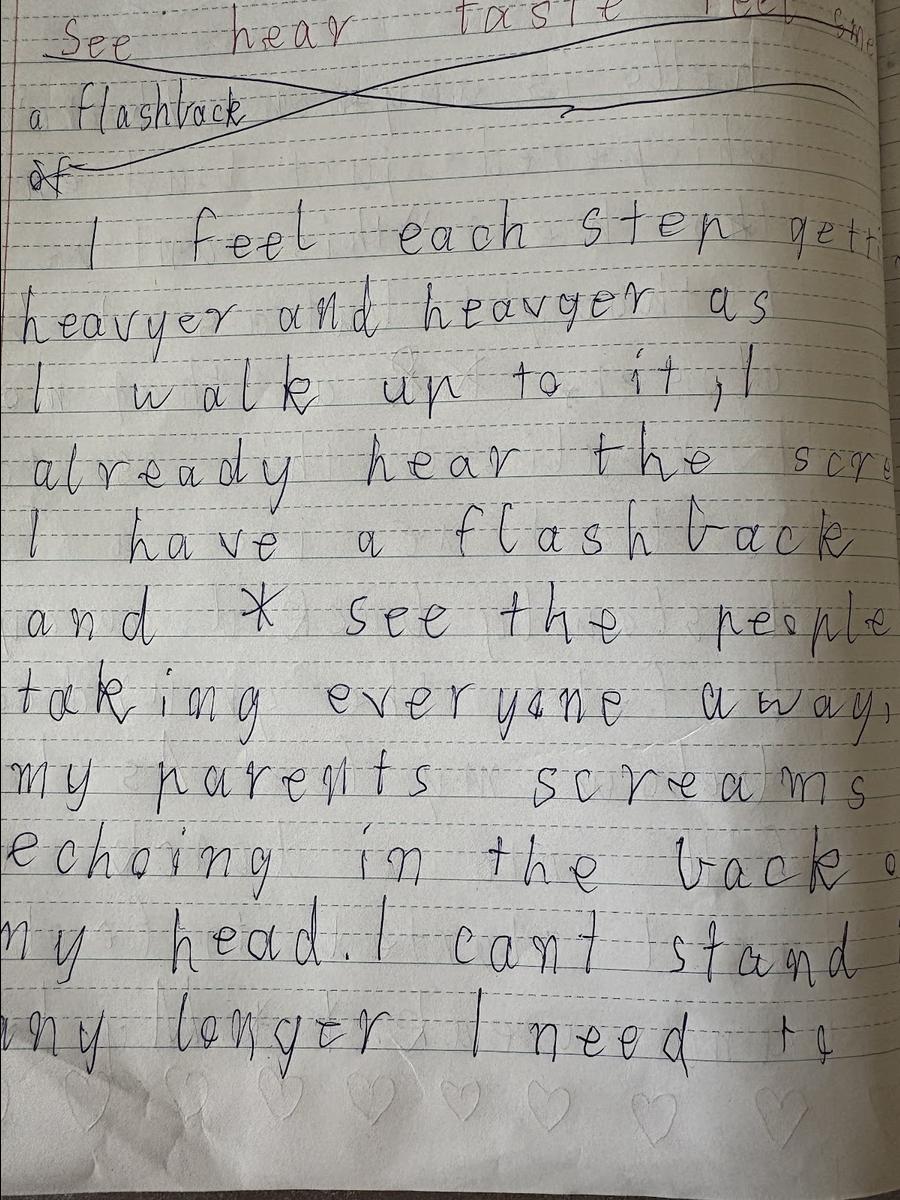 see hear taste feel sme
a flashback
of
I feel each step getti
heavyer and heavyer as
I walk up to it, I
already hear the scre
I have a flash back
and * see the people
taking everyone away,
my parents screams
echoing in the back o
my head. I cant stand
any longer I need to